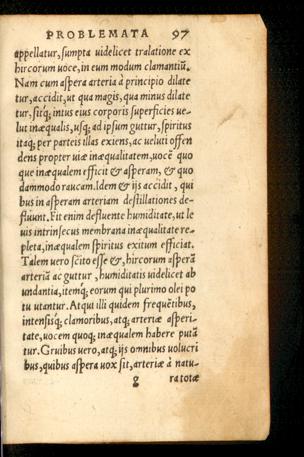 PROBLEMATA 97
appellatur, sumpta uidelicet tralatione ex
hircorum uoce, in eum modum clamantiũ.
Nam cum aspera arteria à principio dilate
tur, accidit, ut qua magis, qua minus dilate
tur, sitq́; intus eius corporis superficies ue-
lut inæqualis, usq; ad ipsum guttur, spiritus
itaq; per parteis illas exiens, ac ueluti offen
dens propter uiæ inæqualitatem, uocẽ quo
que inæqualem efficit & asperam, & quo
dammodo raucam. Idem & ijs accidit, qui
bus in asperam arteriam destillationes de-
fluunt. Fit enim defluente humiditate, ut le
uis intrinsecus membrana inæqualitate re-
pleta, inæqualem spiritus exitum efficiat.
Talem uero scito esse &, hircorum asperã
arteriã ac guttur, humiditatis uidelicet ab
undantia, itemq́; eorum qui plurimo olei po
tu utantur. Atqui illi quidem frequẽtibus,
intensisq́; clamoribus, atq; arteriæ asperi-
tate, uocem quoq; inæqualem habere putã
tur. Gruibus uero, atq; ijs omnibus uolucri
bus, quibus aspera uox sit, arteriæ à natu-
g ra totæ